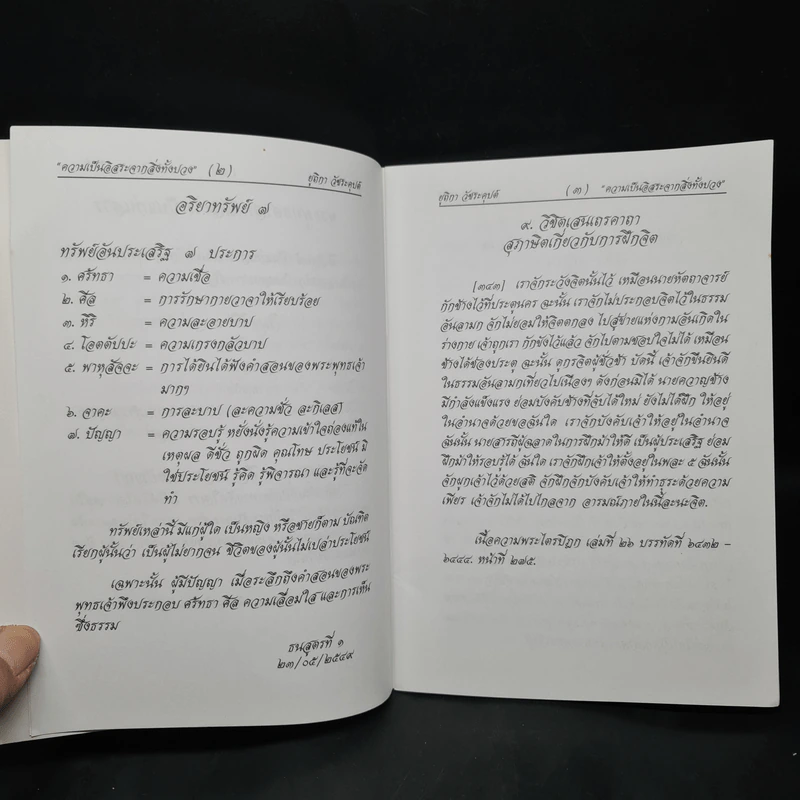 "ความเป็นอิสระจากสิ่งทั้งปวง" (๒) ยุถิกา วัชระคุปต์
อริยาทรัพย์ ๗
ทรัพย์อันประเสริฐ ๗ ประการ
๑. ศรัทธา = ความเชื่อ
๒. ศีล = การรักษากายวาจาให้เรียบร้อย
๓. หิริ = ความละอายบาป
๔. โอตตัปปะ = ความเกรงกลัวบาป
๕. พาหุสัจจะ = การได้ยินได้ฟังคำสอนของพระพุทธเจ้า
มากๆ
๖. จาคะ = การละบาป (ละความชั่ว ละกิเลส)
๗. ปัญญา = ความรอบรู้ หยั่งนั่งรู้ความเข้าใจถ่องแท้ใน
เหตุผล ดีชั่ว ถูกผิด คุณโทษ ประโยชน์ มิ
ใช่ประโยชน์ รู้คิด รู้พิจารณา และรู้ที่จะจัด
ทำ
ทรัพย์เหล่านี้ มีแก่ผู้ใด เป็นหญิง หรือชายก็ตาม บัณฑิต
เรียกผู้นั้นว่า เป็นผู้ไม่ยากจน ชีวิตของผู้นั้นไม่เปล่าประโยชน์
เฉพาะนั้น ผู้มีปัญญา เมื่อระลึกถึงคำสอนของพระ
พุทธเจ้าพึงประกอบ ศรัทธา ศีล ความเลื่อมใส และการเห็น
ซึ่งธรรม
ธนสูตรที่ ๑
๒๓/๐๕/๒๕๔๙
ยุถิกา วัชระคุปต์ (๓) "ความเป็นอิสระจากสิ่งทั้งปวง"
๙. วิชิตเสนเถรคาถา
สุภาษิตเกี่ยวกับการฝึกจิต
[๓๔๓] เราจักระวังจิตนั้นไว้ เหมือนนายหัตถาจารย์
กักช้างไว้ที่ประตูนคร ฉะนั้น เราจักไม่ประกอบจิตไว้ในธรรม
อันลามก จักไม่ยอมให้จิตตกลง ไปสู่ข่ายแห่งกามอันเกิดใน
ร่างกาย เจ้าถูกเรา กักขังไว้แล้ว จักไปตามชอบใจไม่ได้ เหมือน
ช้างได้ช่องประตู ฉะนั้น ดูกรจิตผู้ชั่วช้า บัดนี้ เจ้าจักขืนยินดี
ในธรรมอันลามกเที่ยวไปเนืองๆ ดังก่อนมิได้ นายควาญช้าง
มีกำลังแข็งแรง ย่อมบังคับช้างที่จับได้ใหม่ ยังไม่ได้ฝึก ให้อยู่
ในอำนาจด้วยขอฉันใด เราจักบังคับเจ้าให้อยู่ในอำนาจ
ฉันนั้น นายสารถีผู้ฉลาดในการฝึกม้าให้ดี เป็นผู้ประเสริฐ ย่อม
ฝึกม้าให้รอบรู้ได้ ฉันใด เราจักฝึกเจ้าให้ตั้งอยู่ในพละ ๕ ฉันนั้น
จักผูกเจ้าไว้ด้วยสติ จักฝึกจักบังคับเจ้าให้ทำธุระด้วยความ
เพียร เจ้าจักไม่ได้ไปไกลจาก อารมณ์ภายในนี้ละนะจิต.
เนื้อความพระไตรปิฎก เล่มที่ ๒๖ บรรทัดที่ ๖๔๓๒ -
๖๔๔๔. หน้าที่ ๒๗๕.